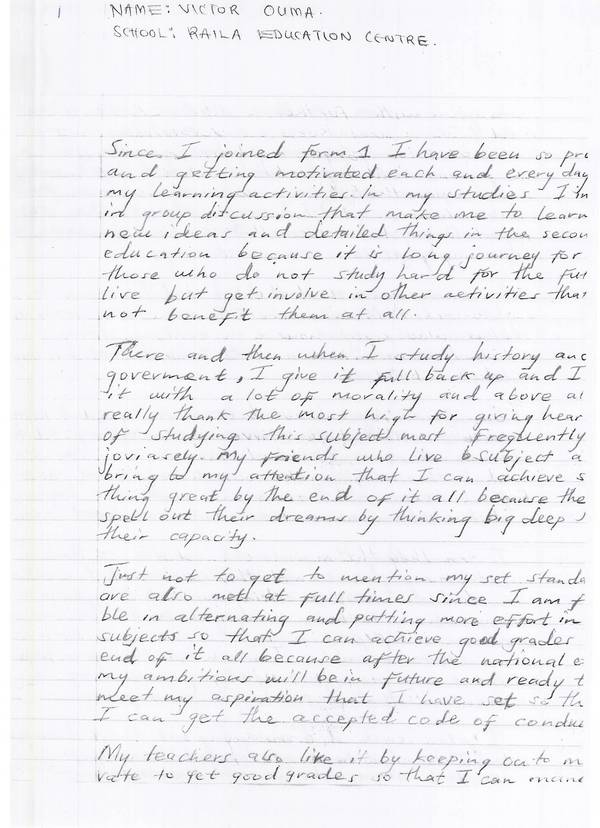 1
NAME: VICTOR OUMA.
SCHOOL: RAILA EDUCATION CENTRE.
Since I joined form 1 I have been so pro
and getting motivated each and every day
my learning activities. In my studies I in
in group discussion that make me to learn
new ideas and detailed things in the secon
education because it is long journey for
those who do not study hard for the fut
live but get involve in other activities that
not benefit them at all.
There and then when I study history and
goverment, I give it full back up and I
it with a lot of morality and above al
really thank the most high for giving hear
of studying this subject most frequently
joviasely. My friends who live subject a
bring to my attention that I can achieve s
thing great by the end of it all because the
spell out their dreams by thinking big deep
their capacity.
Just not to get to mention my set standa
are also met at full times since I am f
ble in alternating and putting more effort in
subjects so that I can achieve good grades
end of it all because after the national e
my ambitions will be in future and ready t
meet my aspiration that I have set so th
I can get the accepted code of conduc
My teachers also like it by keeping on to m
vate to get good grades so that I can